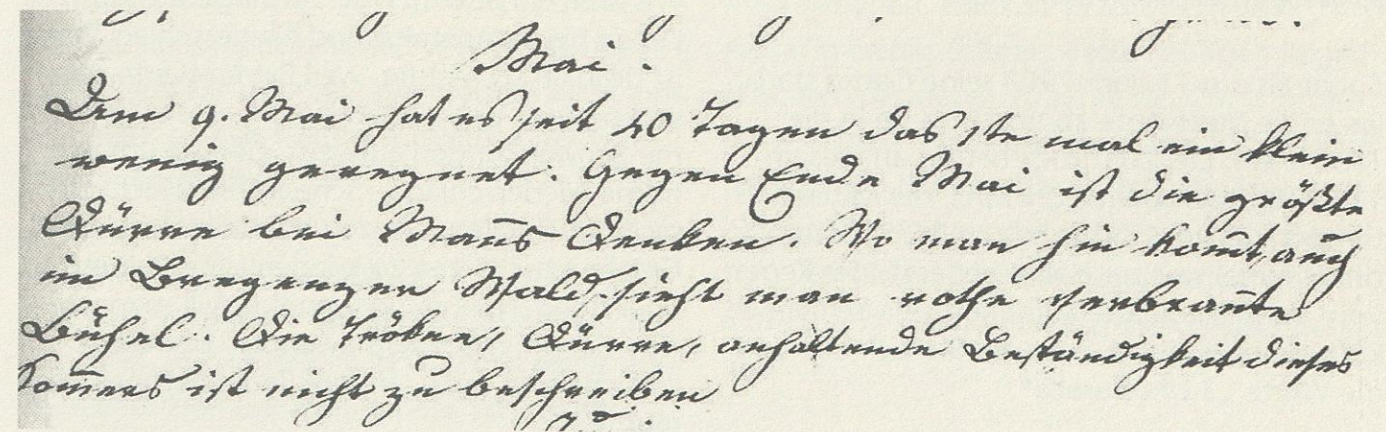 Mai.
Dem 9. Mai hat es seit 40 Tagen das 1te mal ein klein
wenig geregnet. Gegen Ende Mai ist die größte
Dürre bei Man̄s Denken. Wo man hin kom̄t, auch
im Bregenzer Wald, sieht man rothe verbran̄te
Bühel. Die Trökne, Dürre, anhaltende Beständigkeit dieses
Som̄ers ist nicht zu beschreiben